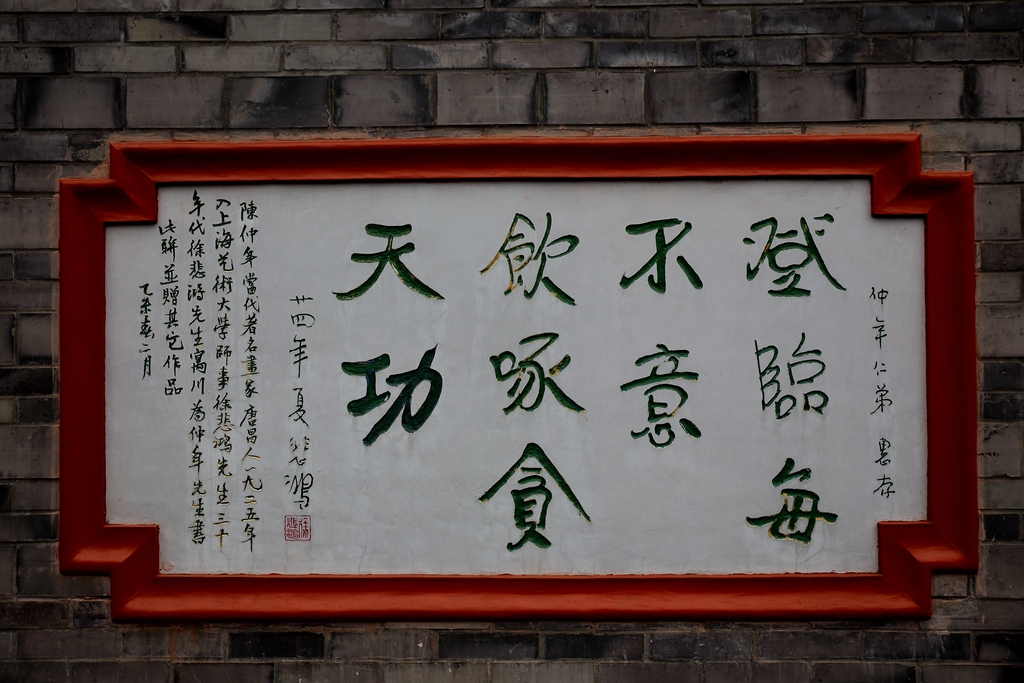 仲年仁弟 惠存
登臨每
不意
飲啄貪
天功
廿四年夏 悲鴻
陳仲年當代著名畫家唐昌人一九二五年
入上海艺術大學師事徐悲鴻先生三十
年代徐悲鴻先生寓川為仲年先生書
此聨並贈其它作品
乙亥春二月